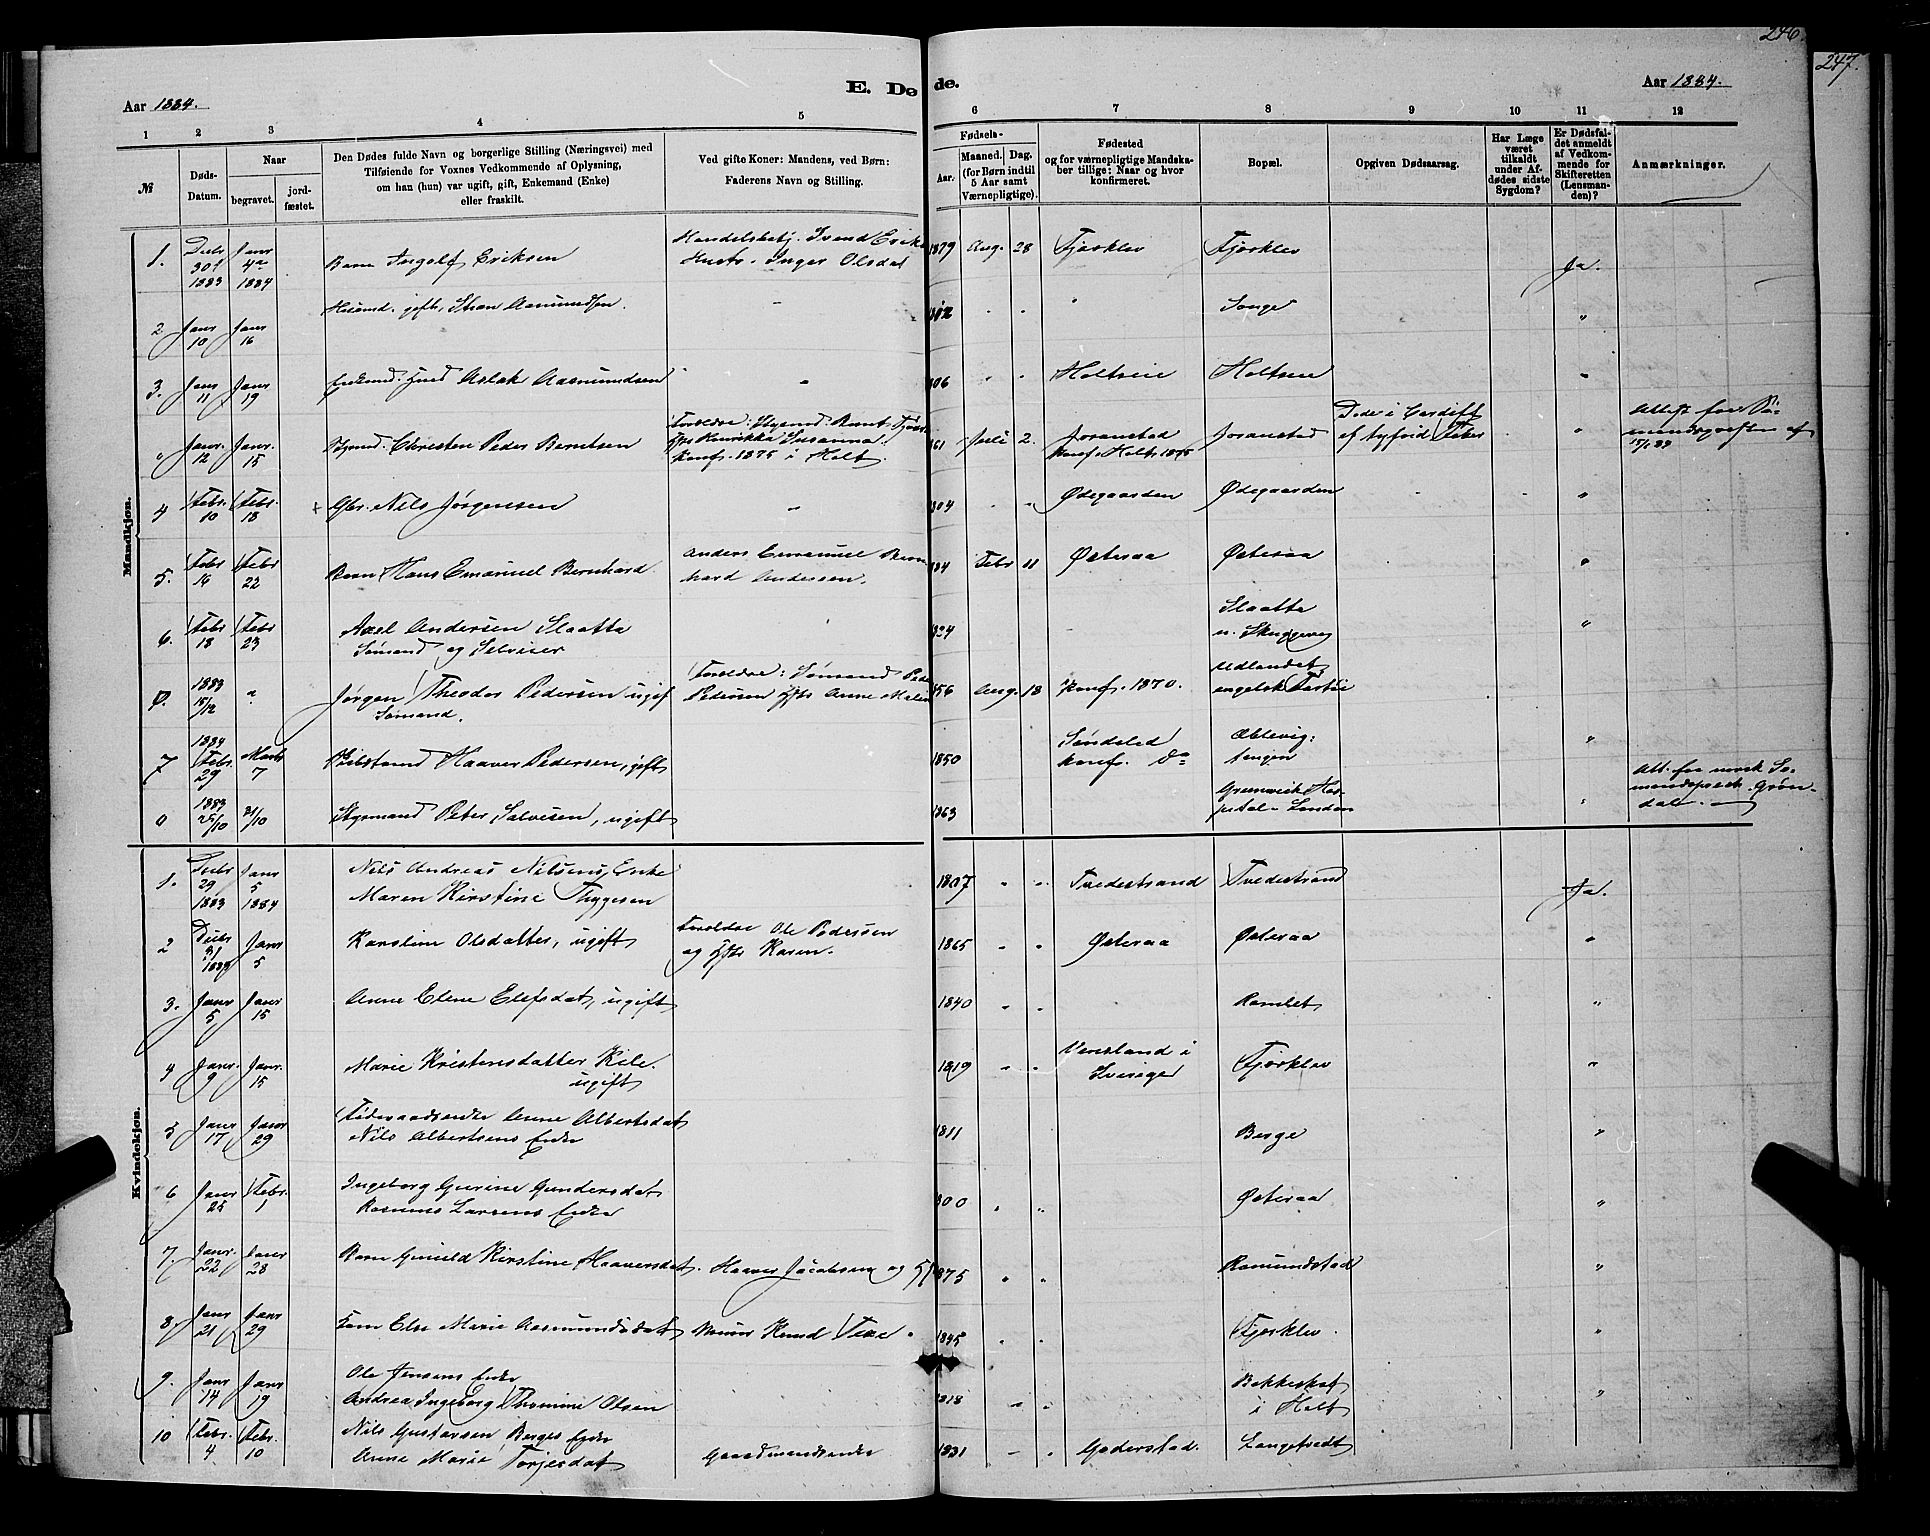 246.
247.
Aar 1884.
E. Døde.
Aar 1884.
1 2 3 4 5 6 7 8 9 10 11 12
№
Døds-Datum.
Naar
begravet.
jordfæstet.
Den Dødes fulde Navn og borgerlige Stilling (Næringsvei) med
Tilføiende for Voxnes Vedkommende af Oplysning,
om han (hun) var ugift, gift, Enkemand (Enke)
eller fraskilt.
Ved gifte Koner: Mandens, ved Børn:
Faderens Navn og Stilling.
Fødsels-
Aar.
Maaned. Dag.
(for Børn indtil
5 Aar samt
Værnepligtige).
Fødested
og for værnepligtige Mandskaber tillige: Naar og hvor
konfirmeret.
Bopæl.
Opgiven Dødsaarsag.
Har Læge
været
tilkaldt
under Afdødes sidste
Sygdom?
Er Dødsfaldet anmeldt
af Vedkommende for
Skifteretten
(Lensmanden)?
Anmærkninger.
Mandkjøn.
1. Decbr 30t 1883 Janr 4de 1884 Barn Ingolf Eriksen Handelsbetj. Svend Eriks Hustr. Inger Olsdat 1879 Aug. 28 Fjærklev Fjærklev Ja.
2. Janr 10 Janr 16 Husmd. gift, Aasmundsen. " Songe "
3. Janr 11 Janr 19 Enkemd. Aslak Aasmundsen " 806 " " Holtseie Holtseie "
" Janr. 12 Janr. 15 Christen Peder Berntsen Forældre: Styrmd Bernt Henrikka Susanna. Konf. 1875 i Holt. 61 Juli 2. Joranstad Konf. Holt 1875 Joranstad Døde i Cardiff af tyfoid Feber " Attest fra Sømandspresten af 15/1 83
4 Febr. 10 Febr. 18 Gbr. Nils Jørgensen " 804 " " Ødegaarden Ødegaarden "
5. Febr 16 Febr 22 Barn Hans Emanuel Bernhard. Anders Emanuel Bernhard Andersen. 84 Febr 11 Østeraa Østeraa "
6. Febr 18 Febr 23 Axel Andersen Slaatta Sømand og Selveier 1824 Slaatta u. Skuggevig "
Ø. 1883 15/12 " Jørgen Theodor Pedersen ugif Sømand. Forældre: Sømand Pede Pedersen Hstr Anne Malen 56 Aug. 18 Konf. 1870. Udlandet engelsk Fartøi
7 1884 Febr. 29 Marts 7 Haaver Pedersen, gift 1850 Søndeled konf. do Æblevigtangen "
0 1883 25/10 31/10 Styrmand Peter Salvesen, ugift 1863 Greenwich Hospital - London " Att. fra norsk Sømandsprest Grøndal.
Kvindekjøn.
1. Decbr 29 1883 Janr 5 1884 Nils Andreas Nilsens Enke Maren Kirstine Thygesen 1807 " " Tvedestrand Tvedestrand Ja.
2 Decbr 31 1883 Janr 5 Karstine Olsdatter, ugift Forældre Ole Pedersen og Hstr Karen. 1865 " " Østeraa Østeraa "
3. Janr 5 Janr 15 Anne Elene Elefsdat, ugift 1840 " " Ramlet "
4 Janr. 9 Janr. 15 Marie Kristensdatter Kile. ugift 1819 " " Vermland i Sverige Fjærklev "
5 Janr 17 Janr 29 Føderaadsenke Anne Albertsdat Nils Albertsens Enke 1811 Berge "
6 Janr 25 Febr. 1 Ingeborg Gurine Gundersdat Rasmus Larsens Enke 800 " " Østeraa "
7. Janr. 22 Janr 28 Barn Gunild Kirstine Haaversdat. Haaver Jacobsen og 875 " " Ramundstad "
8. Janr 21 Janr 29 Kone Else Marie Aasmundsdat Knud 1845 " " Fjærklev. "
9. Janr 14 Janr 19 Ole Jensens Enke Andrea Ingeborg Thomine Olsen 1818 " " Bakkeskot i Holt "
10 Febr. 4 Febr. 10 Nils Gustavsen Berges Enke Anne Marie Torjesdat Gaardmandsenke 1831 " " Goderstad. Langetvedt